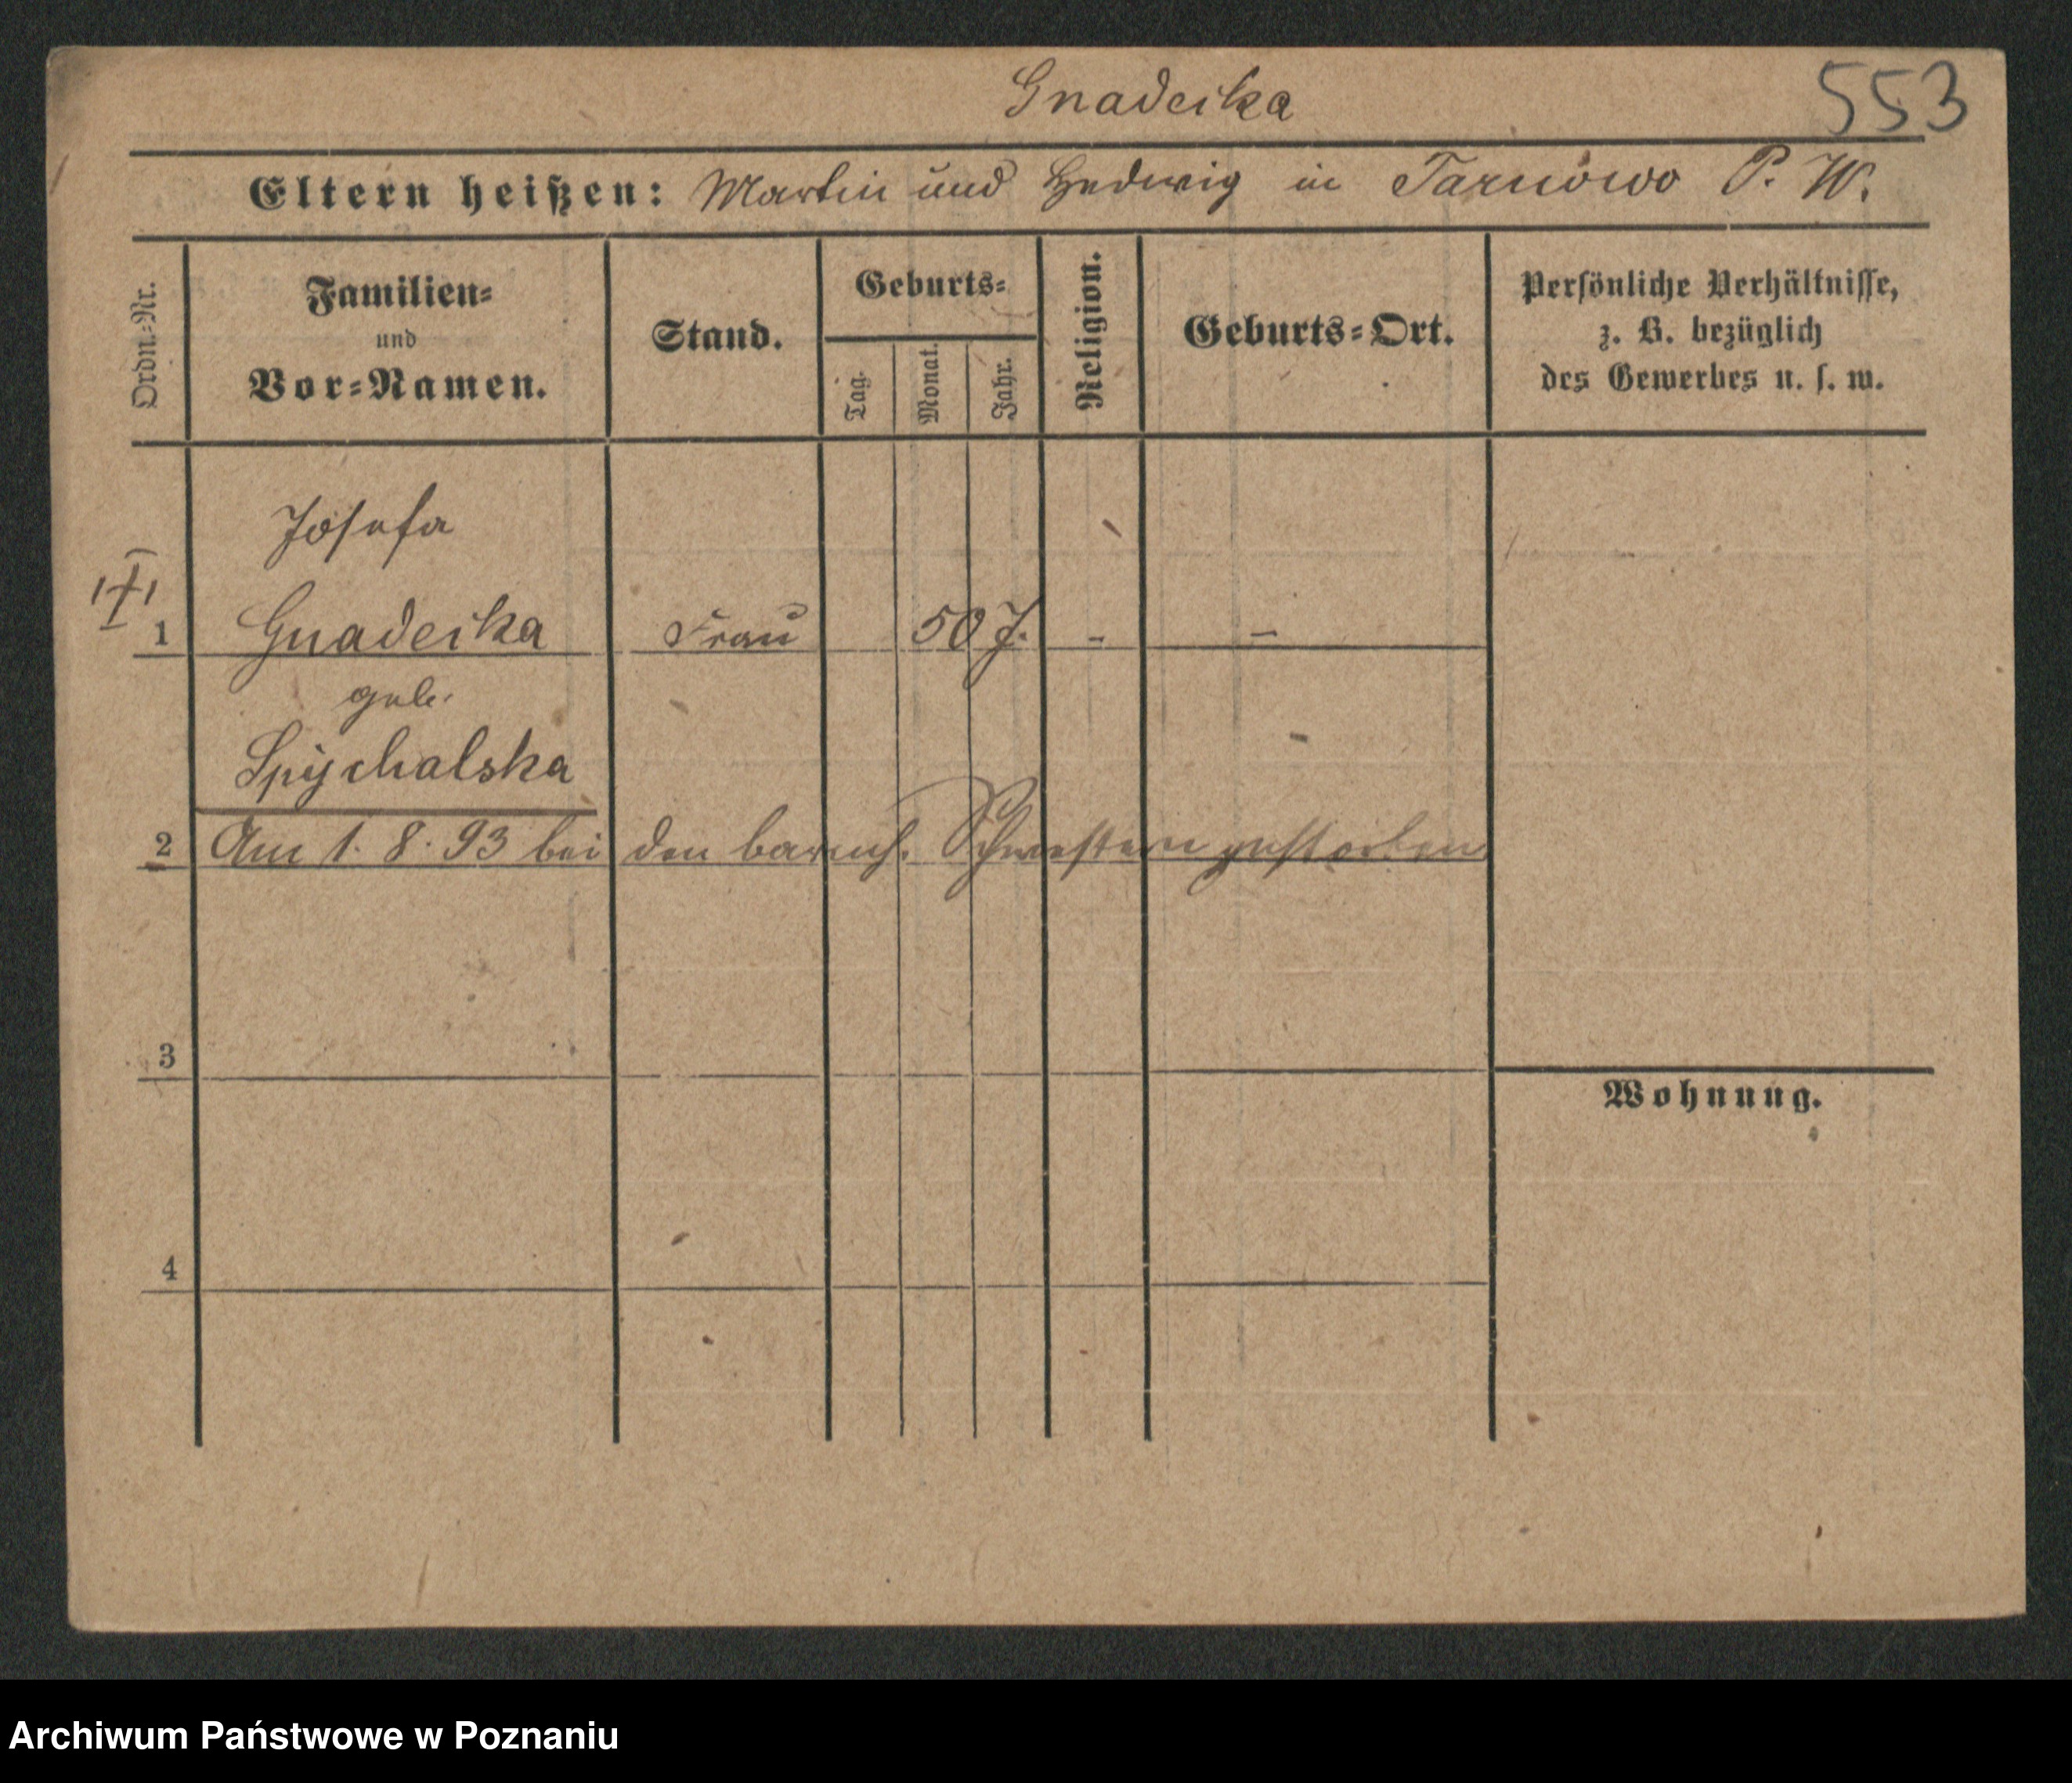 Gnadecka
553
Eltern heißen: Martin und Hedwig in Tarnowo P. W.
Ordn.=Nr.
Familien=
und
Vor=Namen.
Stand.
Geburts=
Tag.
Monat.
Jahr.
Religion.
Geburts=Ort.
Persönliche Verhältnisse,
z. B. bezüglich
des Gewerbes u. s. w.
Josefa
1 Gnadecka Frau 50 J. - -
geb.
Spychalska
2 Am 1. 8. 93 bei den barmh. Schwestern gestorben
3
Wohnung.
4
Archiwum Państwowe w Poznaniu